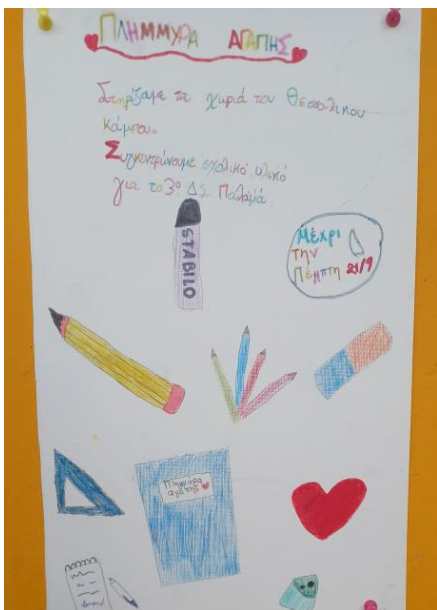 ΠΛΗΜΜΥΡΑ ΑΓΑΠΗΣ
Στηρίζουμε τα χωριά του Θεσσαλικού
κάμπου.
Συγκεντρώνουμε σχολικό υλικό
για το 3ο ΔΣ Παλαμά.
STABILO
Μέχρι
την
Πέμπτη 21/9
Πλημμύρα
αγάπης